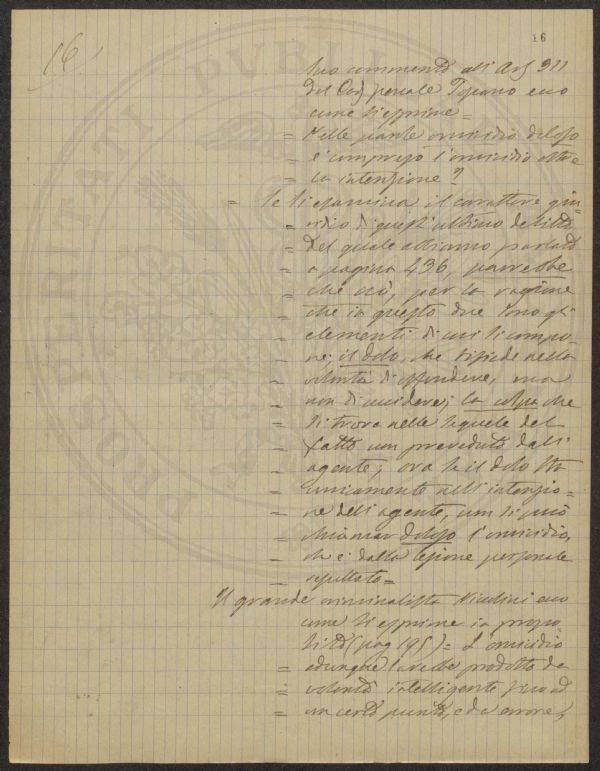 16
16.
suo commento all' Art 311
del Cod penale Toscano ecco
come si esprime =
= Nelle parole omicidio doloso
= è compreso l'omicidio oltre
= la intenzione?
= Se si esamina il carattere giu-
= ridico di quest'ultimo delitto
= del quale abbiamo parlato
= a pagina 496, parrebbe
= che no, per la ragione
= che in questo due sono gli
= elementi di cui si compo-
= ne; il dolo, che risiede nella
= volontà di offendere, ma
= non di uccidere; la colpa che
= si trova nelle seguele del
= fatto non preveduto dall'
= agente; ora se il dolo sta
= unicamente nell'intenzio=
= ne dell'agente, non si può
= chiamar doloso l'omicidio,
= che è dalla lesione personale
= resultato=
Il grande criminalista Nicolini ecco
come si esprime in propo
sito (pag 195) = L'omicidio
= adunque sarebbe prodotto da
= volontà intelligente fino ad
= un certo punto, e da errore,
PROSPERITATI PUBLICAE